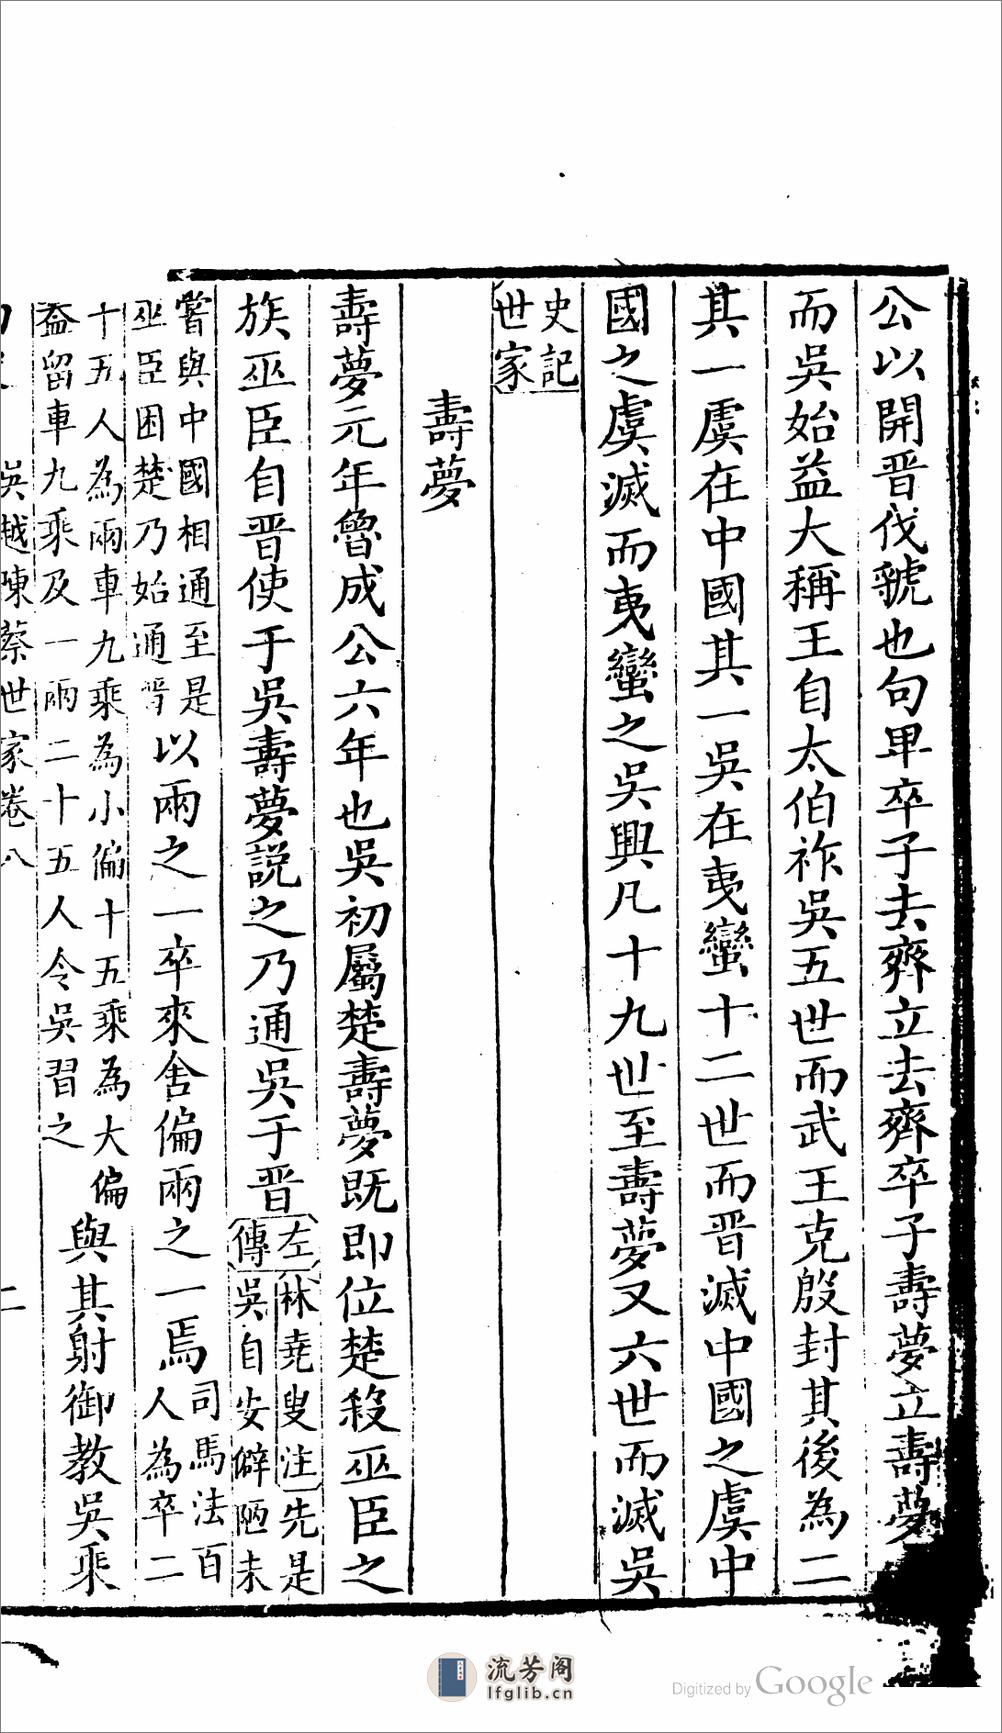 公以開晉伐虢也句卑卒子去齊立去齊卒子壽夢立壽夢
而吳始益大稱王自太伯祚吳五世而武王克殷封其後為二
其一虞在中國其一吳在夷蠻十二世而晉滅中國之虞中
國之虞滅而夷蠻之吳興凡十九世至壽夢又六世而滅吳
史記
世家
壽夢
壽夢元年魯成公六年也吳初屬楚壽夢既即位楚殺巫臣之
族巫臣自晉使于吳壽夢説之乃通吳于晉
左
傳
林堯叟注先是
吳自安僻陋未
嘗與中國相通至是
巫臣困楚乃始通晉
以兩之一卒來舍偏兩之一焉
司馬法百
人為卒二
十五人為兩車九乘為小偏十五乘為大偏
葢留車九乘及一兩二十五人令吳習之
與其射御教吳乘
吳越陳蔡世家卷八
二
流芳阁
lfglib.cn
Digitized by Google